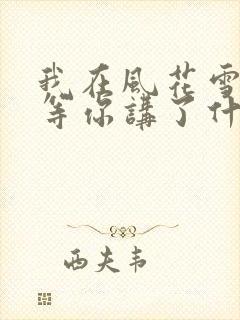 我在風花雪
等你講了什
西夫韦